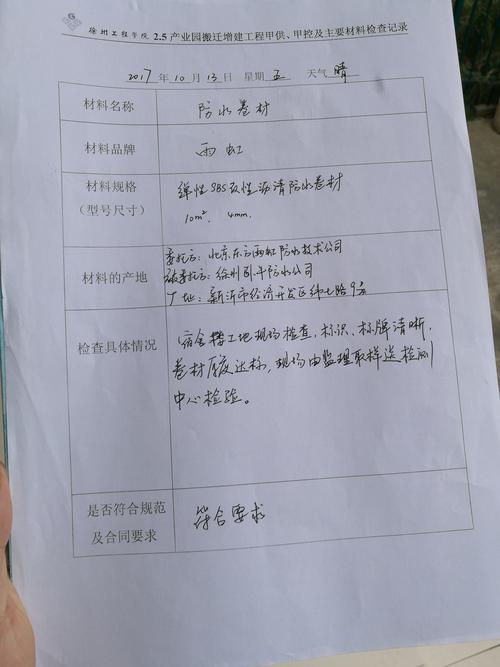 徐州工程学院 2.5产业园搬迁增建工程甲供、甲控及主要材料检查记录
2017年10月13日 星期五 天气晴
材料名称 防水卷材
材料品牌 雨虹
材料规格
（型号尺寸）
弹性SBS改性沥清防水卷材
10m². 4mm.
材料的产地
委托方：北京东方雨虹防水技术公司
被委托方：徐州卧牛防水公司
厂址：新沂市经济开发区纬七路9号
检查具体情况
宿舍楼工地现场检查，标识、标牌清晰，
卷材厚度达标，现场由监理取样送检测
中心检验。
是否符合规范
及合同要求
符合要求